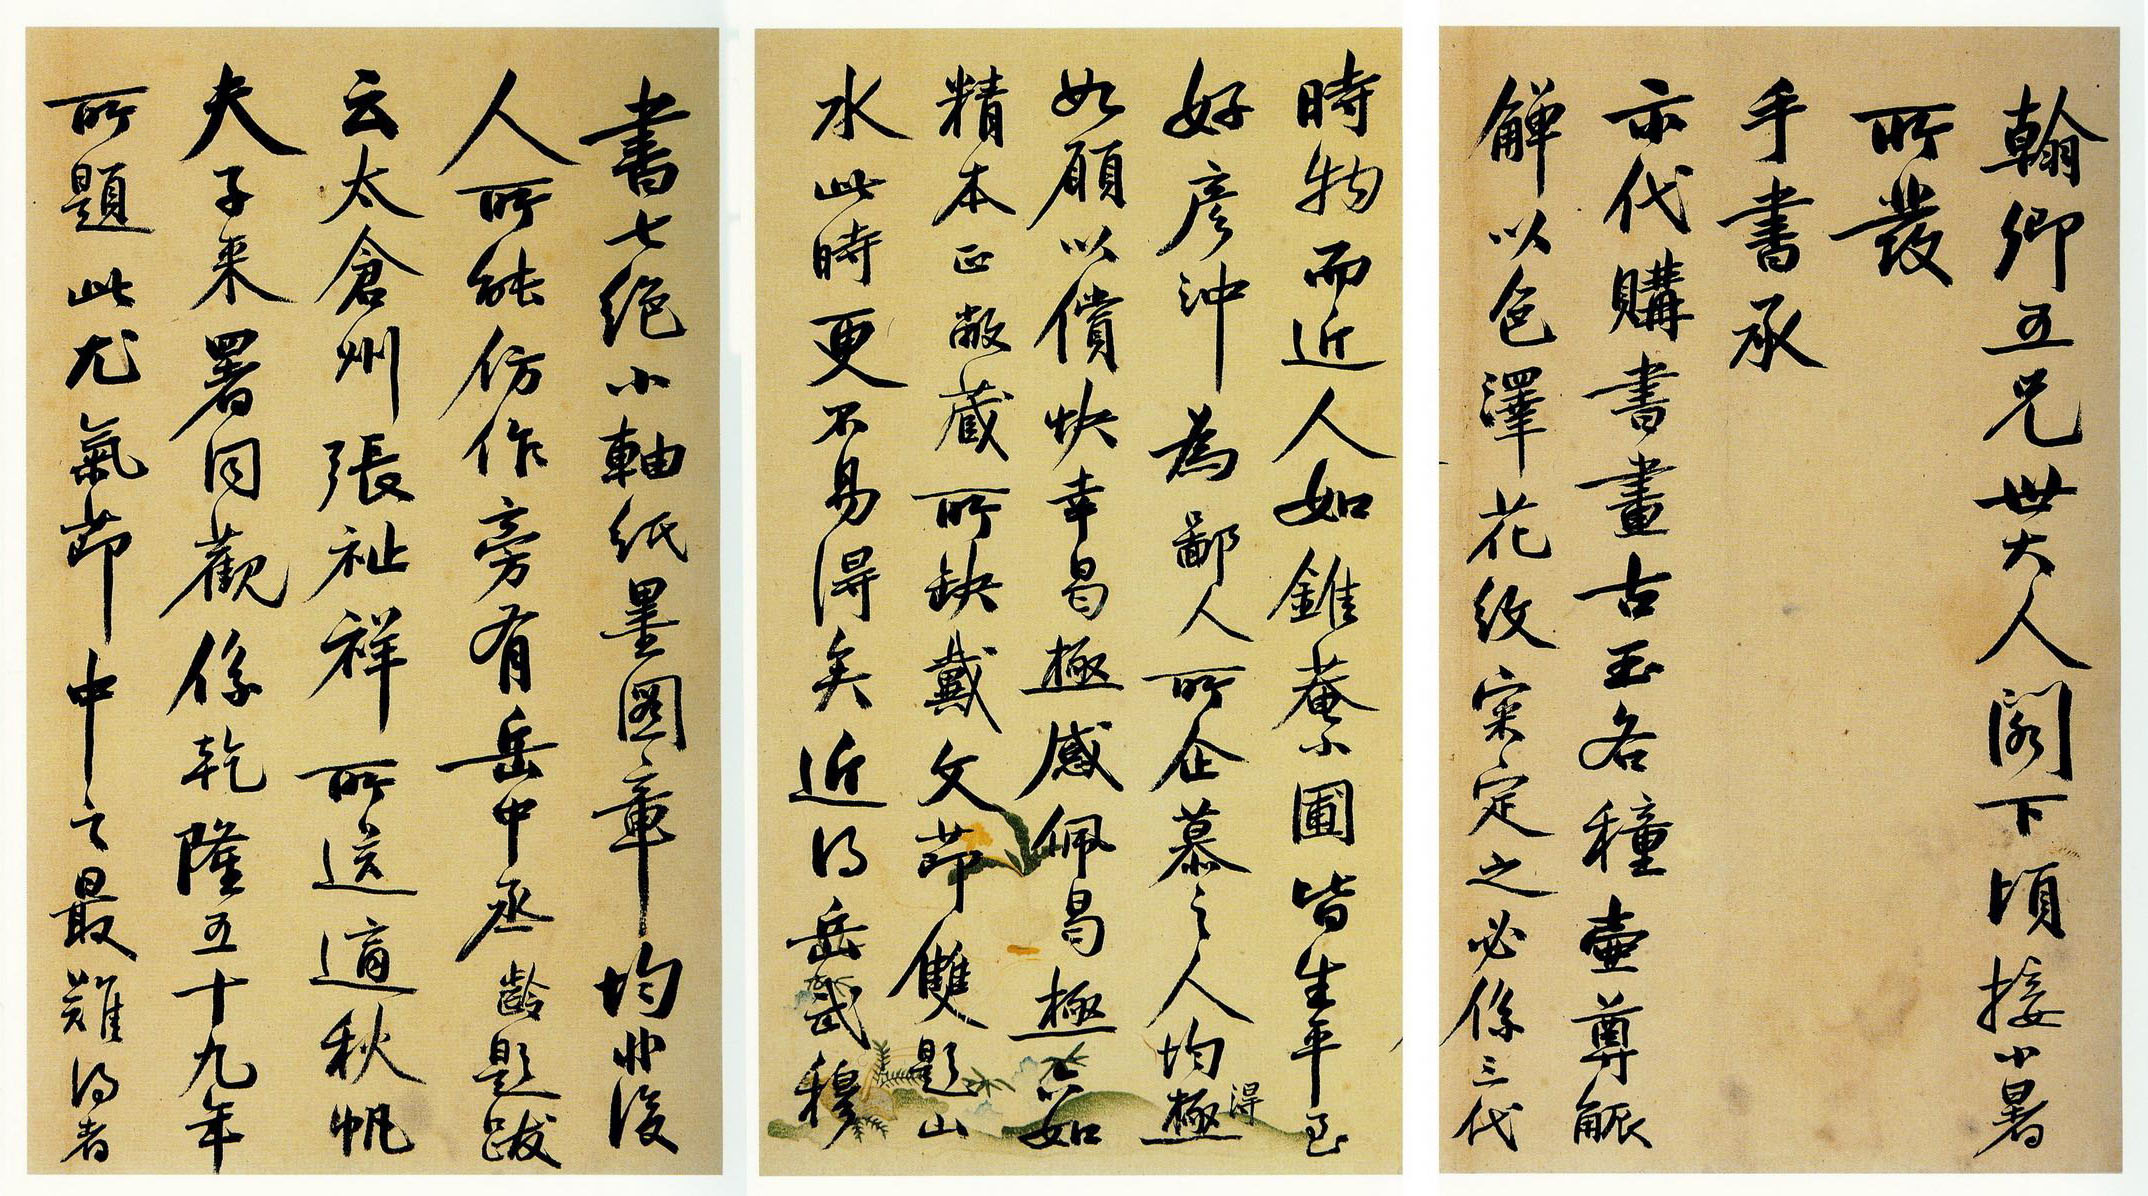 翰卿五兄世大人閣下頃接小暑
所發
手書承
示代購書畫古玉各種壺尊觚
觶以色澤花紋案定之必係三代
時物而近人如錐菴小圃皆生平至
好彥沖為鄙人所企慕之人均極得
如願以償快幸曷極感佩曷極六如
精本正敝藏所缺戴文節雙題山
水此時更不易得矣近得岳武穆
書七絕小軸紙墨圖章均非後
人所能仿作旁有岳中丞齡題跋
云太倉州張祉祥所送適秋帆
夫子來署同觀係乾隆五十九年
所題此尤氣節中之最難得者